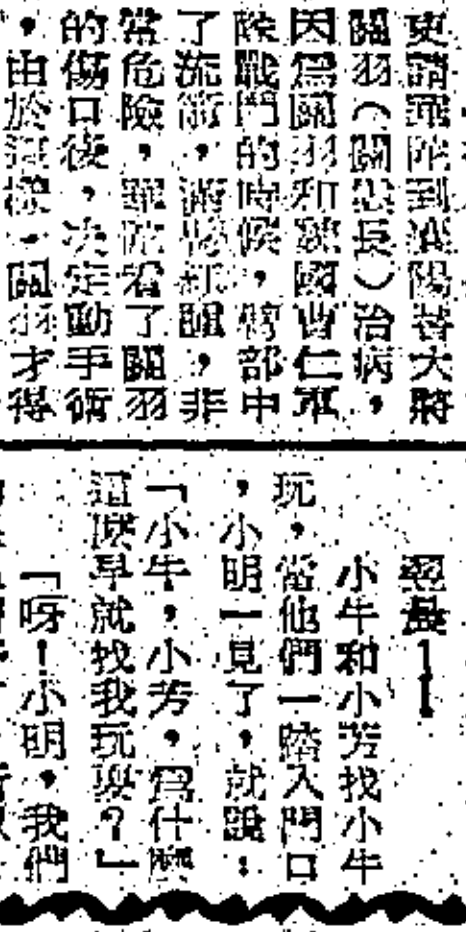 更請華陀到濮陽替大將
關羽（關雲長）治病，
因爲關羽和魏國曹仁軍
隊戰鬥的時候，臂部中
了流箭，
，非
常危險，華陀看了關羽
的傷口後，決定動手術
，由於這樣，關羽才得
小牛和小芳找小牛
玩，當他們一踏入門口
，小明一見了，就說：
「小牛，小芳，爲什麼
這麼早就找我玩耍？」
「呀！小明，我們